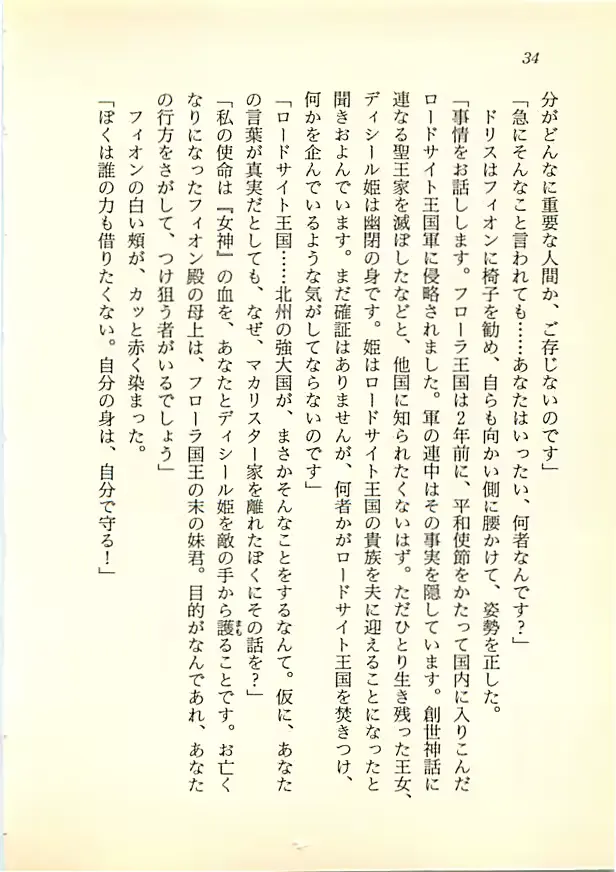 34
分がどんなに重要な人間か、ご存じないのです」
「急にそんなこと言われても……あなたはいったい、何者なんです?」
ドリスはフィオンに椅子を勧め、自らも向かい側に腰かけて、姿勢を正した。
「事情をお話しします。フローラ王国は2年前に、平和使節をかたって国内に入りこんだ
ロードサイト王国軍に侵略されました。軍の連中はその事実を隠しています。創世神話に
連なる聖王家を滅ぼしたなどと、他国に知られたくないはず。ただひとり生き残った王女、
ディシール姫は幽閉の身です。姫はロードサイト王国の貴族を夫に迎えることになったと
聞きおよんでいます。まだ確証はありませんが、何者かがロードサイト王国を焚きつけ、
何かを企んでいるような気がしてならないのです」
「ロードサイト王国……北州の強大国が、まさかそんなことをするなんて。仮に、あなた
の言葉が真実だとしても、なぜ、マカリスター家を離れたぼくにその話を?」
「私の使命は『女神』の血を、あなたとディシール姫を敵の手から護ることです。お亡く
まも
なりになったフィオン殿の母上は、フローラ国王の末の妹君。目的がなんであれ、あなた
の行方をさがして、つけ狙う者がいるでしょう」
フィオンの白い頬が、カッと赤く染まった。
「ぼくは誰の力も借りたくない。自分の身は、自分で守る!」